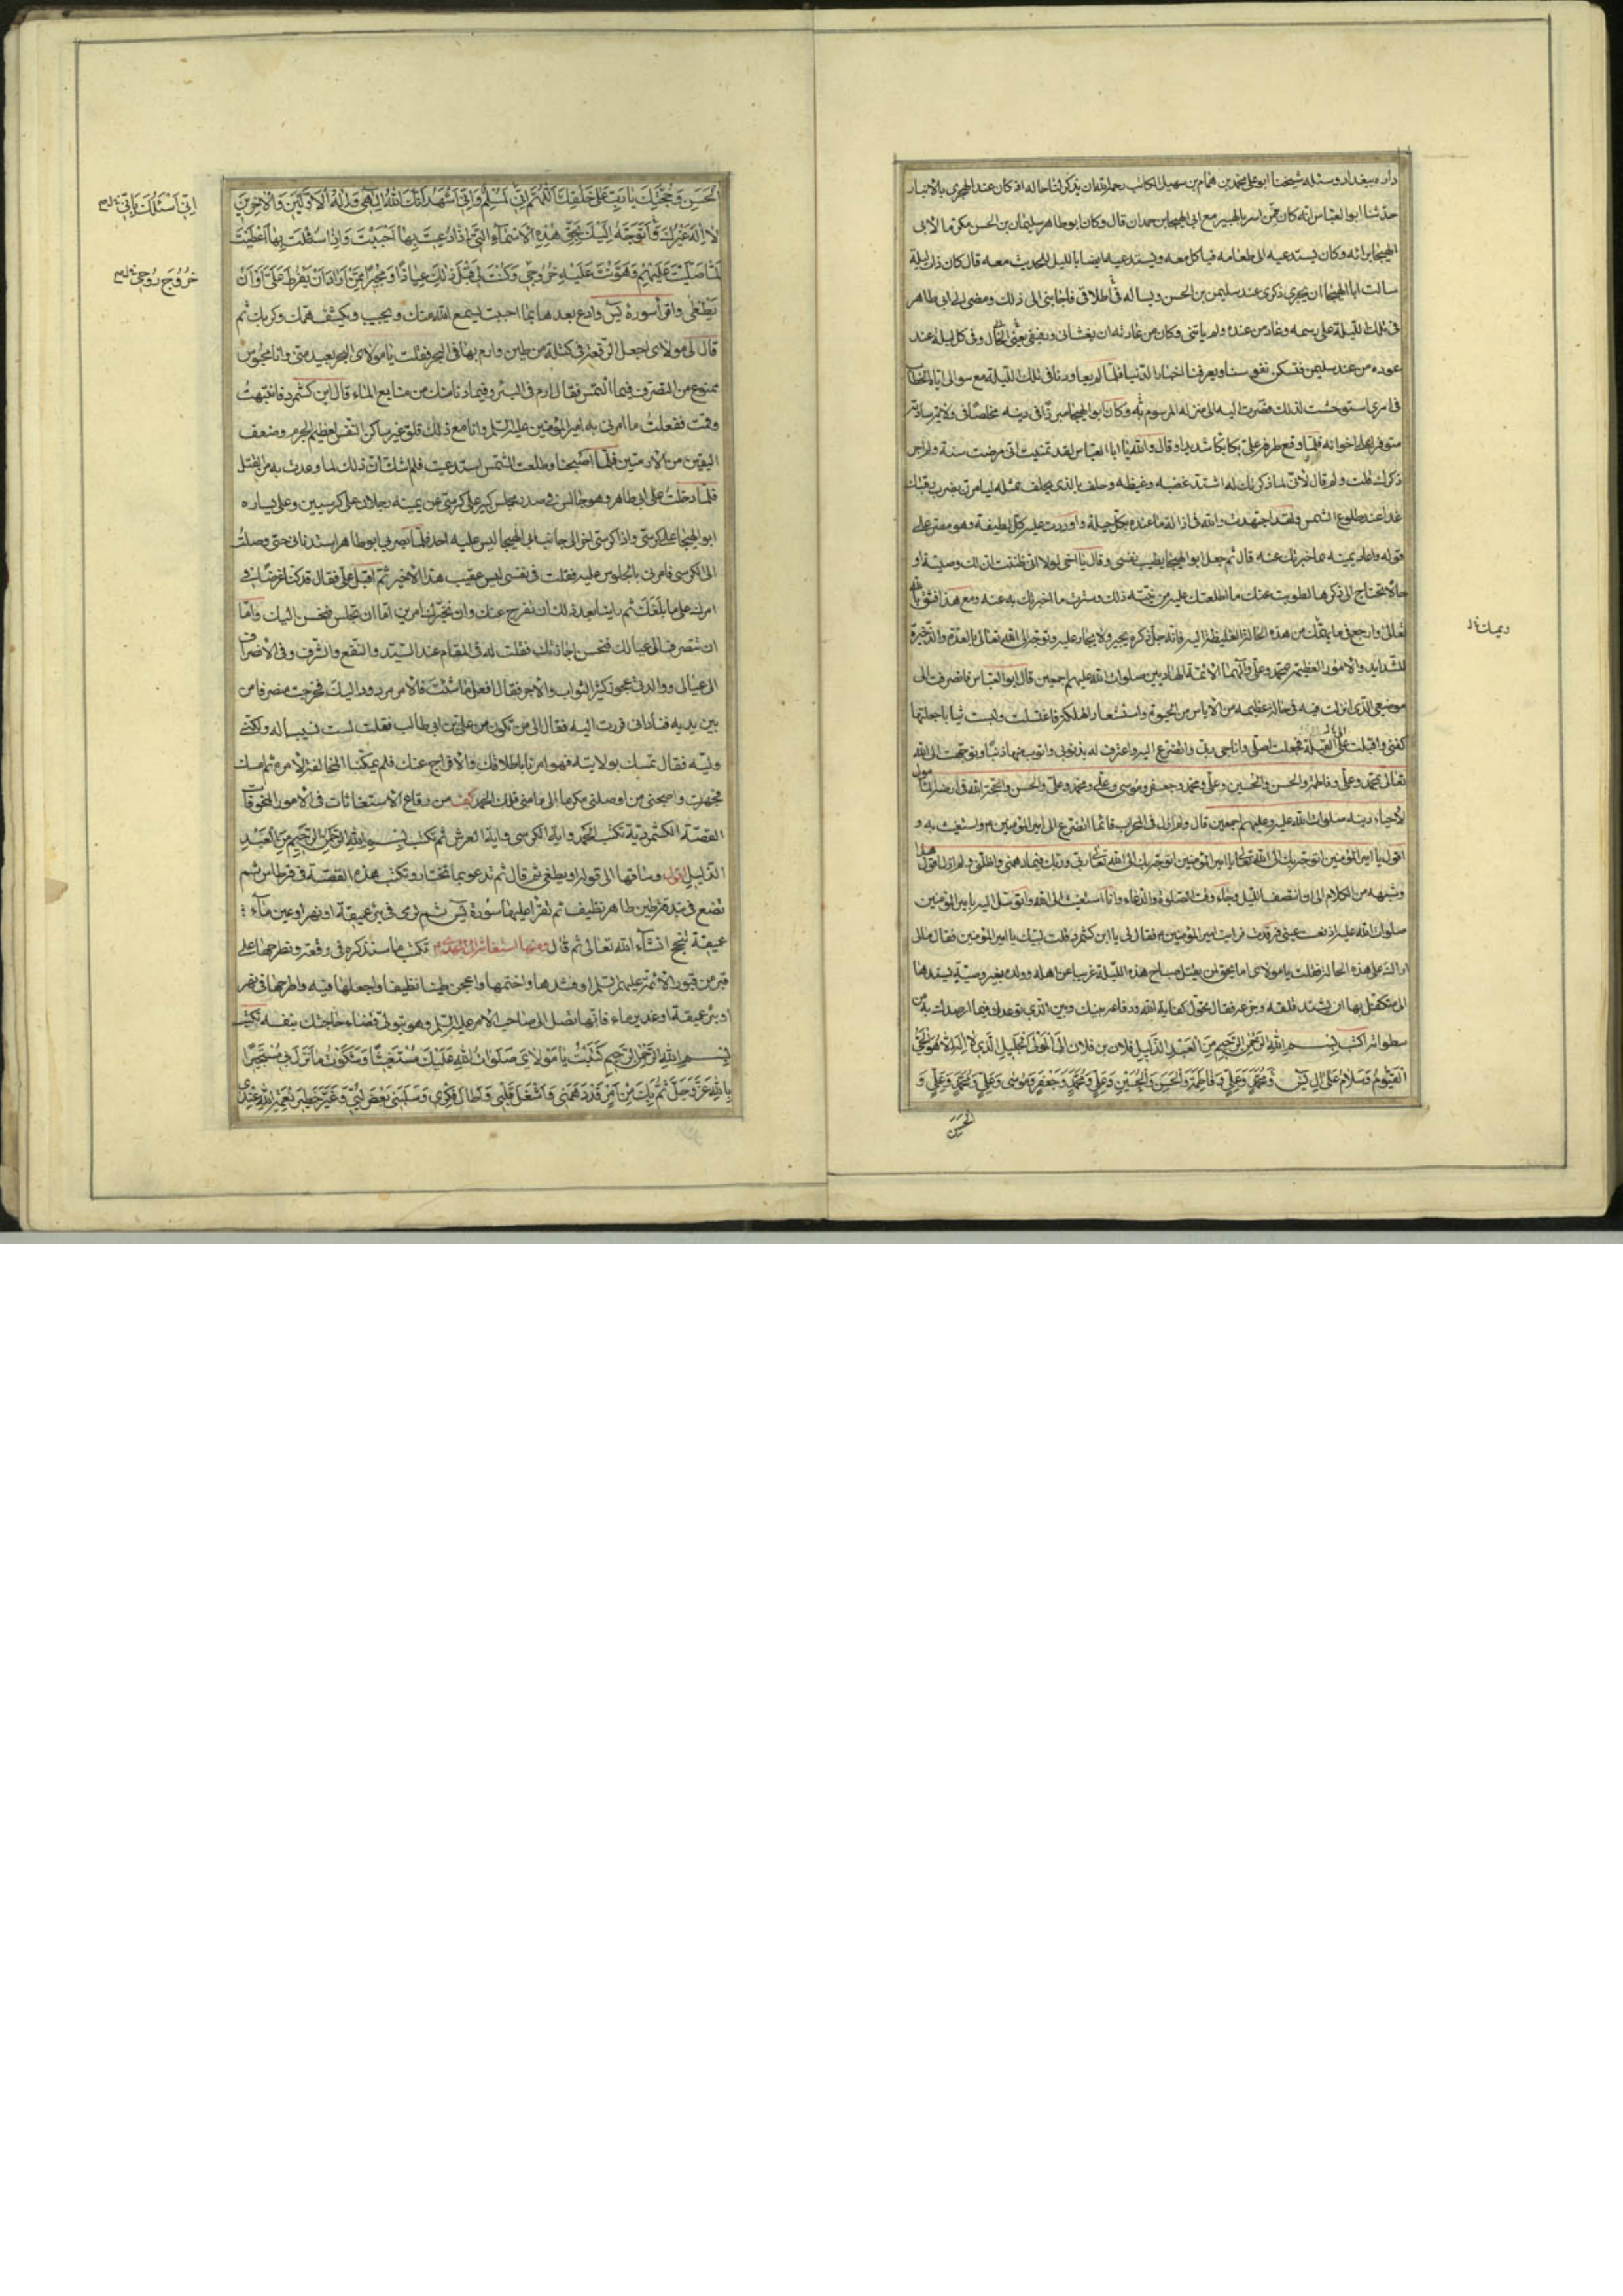 داره ببغداد وسئله شيخنا ابو علي محمد بن همام بن سهيل الكاتب رحمه الله ان يذكر لنا حاله اذ كان عند الهجري بالانبار
حدثنا ابو العباس انه كان ممن اسر بالهبير مع ابي الهيجا بن حمدان قال وكان ابو طاهر سليمان بن الحسن مكرما لابي
الهيجا برا به وكان يستدعيه الى طعامه فياكل معه ويستدعيه ايضا بالليل للحديث معه قال كان ذات ليلة
سالت ابا الهيجا ان يجري ذكري عند سليمن بن الحسن ويساله في اطلاقي فاجابني الى ذلك ومضى الى ابي طاهر
في تلك الليلة على رسمه وعاد من عنده ولم ياتني وكان من عادته ان يغشاني ورفيقي يعني الخال في كل ليلة عند
عوده من عند سليمن فتسكن نفوسنا ويعرفنا اخبار الدنيا فلما لم يعاودنا في تلك الليلة مع سوالي اياه الخطاب
في امري استوحشت لذلك فصرت اليه الى منزله المرسوم به وكان ابو الهيجا مبرزا في دينه مخلصا في ولايته سادته
متوفرا على اخوانه فلما وقع طرفه علي بكا بكاء شديدا وقال والله يا ابا العباس لقد تمنيت اني مرضت سنة ولم اجر
ذكرك قلت ولم قال لاني لما ذكرتك له اشتد غضبه وغيظه وحلف بالذي يحلف بمثله ليامرن بضرب رقبتك
غدا عند طلوع الشمس ولقد اجتهدت والله في ازالة ما عنده بكل حيلة واوردت عليه كل لطيفة وهو مصر على
قوله واعاد يمينه بما خبرتك عنه قال ثم جعل ابو الهيجا يطيب نفسي وقال يا اخي لولا اني ظننت ان لك وصية او
حالا تحتاج الى ذكرها لطويت عنك ما اطلعتك عليه من نيته ذلك وسترت ما اخبرتك به عنه ومع هذا فثق بالله
تعالى وارجع في ما يهمك من هذه الحالة الغليظة اليه فانه جل ذكره يجير ولا يجار عليه وتوجه الى الله تعالى بالعدة والذخيرة
للشدايد والامور العظيمة بمحمد وعلي وآلهما الائمة الهادين صلوات الله عليهم اجمعين قال ابو العباس فانصرفت الى
موضعي الذي انزلت فيه في حالة عظيمه من الاياس من الحيوة واستشعار الهلكة فاغتسلت ولبست ثيابا جعلتها
كفني واقبلت على القبلة فجعلت اصلي واناجي ربي واتضرع اليه واعترف له بذنوبي واتوب منها ذنبا ذنبا وتوجهت الى الله
تعالى بمحمد وعلي وفاطمة والحسن والحسين وعلي ومحمد وجعفر وموسى وعلي ومحمد وعلي والحسن والحجة الله في ارضه المأمول
لاحياء دينه صلوات الله عليه وعليهم اجمعين قال ولم ازل في المحراب قائما اتضرع الى امير المؤمنين واستغيث به و
اقول يا امير المؤمنين اتوجه بك الى الله تعالى ربي وربك فيما دهمني واظلني ولم ازل اقول هذا
وشبهه من الكلام الى ان انتصف الليل وجاء وقت الصلوة والدعاء وانا استغيث الى الله واتوسل اليه بامير المؤمنين
صلوات الله عليه اذ نعست عيني فرقدت فرايت امير المؤمنين فقال لي يا ابن كشمرد قلت لبيك يا امير المؤمنين فقال مالي
اراك على هذه الحالة فقلت يا مولاي اما يحق لمن يقتل صباح هذه الليلة غريبا عن اهله وولده بغير وصية يسندها
الى متكفل بها ان يشتد قلقه وجزعه فقال تحول كفاية الله ودفاعه بينك وبين الذي توعدك فيما ارصدك به من
سطواته اكتب بسم الله الرحمن الرحيم من العبد الذليل فلان بن فلان الى المولى الجليل الذي لا اله الا هو الحي
القيوم وسلام على ال يس ومحمد وعلي وفاطمة والحسن والحسين وعلي ومحمد وجعفر وموسى وعلي ومحمد وعلي و
الحسن
الحسن وحجتك يا رب على خلقك اللهم اني لمسلم واني اشهد انك الله الهي واله الاولين والاخرين
لا اله غيرك واتوجه اليك بحق هذه الاسماء التي اذا دعيت بها اجبت واذا سئلت بها اعطيت
لما صليت عليهم وهونت علي خروجي وكنت لي قبل ذلك عياذا ومجيرا ممن اراد ان يفرط علي او ان
يطغى واقرأ سورة يس وادع بعدها بما احببت ليسمع الله منك ويجيب ويكشف همك وكربك ثم
قال لي مولاي اجعل الرقعة في كتلة من طين وارم بها في البحر فقلت يا مولاي البحر بعيد مني وانا محبوس
ممنوع من التصرف فيما التمس فقال ارم في البئر وفيما دنا منك من منابع الماء قال ابن كشمرد فانتبهت
وقمت ففعلت ما امرني به امير المؤمنين عليه السلم وانا مع ذلك قلق غير ساكن النفس لعظيم الجرم وضعف
اليقين من الادميين فلما اصبحنا وطلعت الشمس استدعيت فلم اشك ان ذلك لما وعدت به من القتل
فلما دخلت على ابي طاهر وهو جالس في صدر مجلس كبير على كرسي عن يمينه رجلان على كرسيين وعلى يساره
ابو الهيجا على كرسي واذا كرسي اخر الى جانب ابي الهيجا ليس عليه احد فلما بصر بي ابو طاهر استدناني حتى وصلت
الى الكرسي فامرني بالجلوس عليه فقلت في نفسي ليس عقيب هذا الا خير ثم اقبل علي فقال قد كنا عزمنا في
امرك على ما بلغك ثم راينا بعد ذلك ان نفرج عنك وان نخيرك امرين اما ان تجلس فنحسن اليك واما
ان تنصرف الى عيالك فنحسن اجازتك فقلت له في المقام عند السيد والنفع والشرف وفي الانصراف
الى عيالي ووالدتي عجوز كبيرة الثواب والاجر فقال افعل ما شئت فالامر مردود اليك فخرجت منصرفا من
بين يديه فناداني فرددت اليه فقال لي من تكون من علي بن ابي طالب فقلت لست نسيبا له ولكني
وليه فقال تمسك بولايته فهو امرنا باطلاقك والافراج عنك فلم يمكنا المخالفة لامره ثم امسك
فجهزت واصحبني من اوصلني مكرما الى مامني فلك الحمد من رقاع الاستغاثات في الامور المخوفات
القصة الكشمردية تكتب الحمد واية الكرسي واية العرش ثم تكتب بسم الله الرحمن الرحيم من العبد
الذليل اقول وساقها الى قوله او يطغى ثم قال ثم تدعو بما تختار وتكتب هذه القصة في قرطاس ثم
تضع في بندقة طين طاهر نظيف ثم تقرأ عليها سورة يس ثم ترمى في بئر عميقة او نهر او عين ماء
عميقة تنجح انشاء الله تعالى ثم قال ومنها استغاثة الى المهدي تكتب ما سنذكره في رقعة وتطرحها على
قبر من قبور الائمة عليهم السلم او فشدها واختمها واعجن طينا نظيفا واجعلها فيه واطرحها في نهر
او بئر عميقة او غدير ماء فانها تصل الى صاحب الامر عليه السلم وهو يتولى قضاء حاجتك بنفسه تكتب
بسم الله الرحمن الرحيم كتبت يا مولاي صلوات الله عليك مستغيثا وشكوت ما نزل بي مستجيرا
بالله عز وجل ثم بك من امر قد دهمني واشغل قلبي واطال فكري وسلبني بعض لبي وغير خطير نعمة الله عندي
اني اسئلك باني
خروج روحي